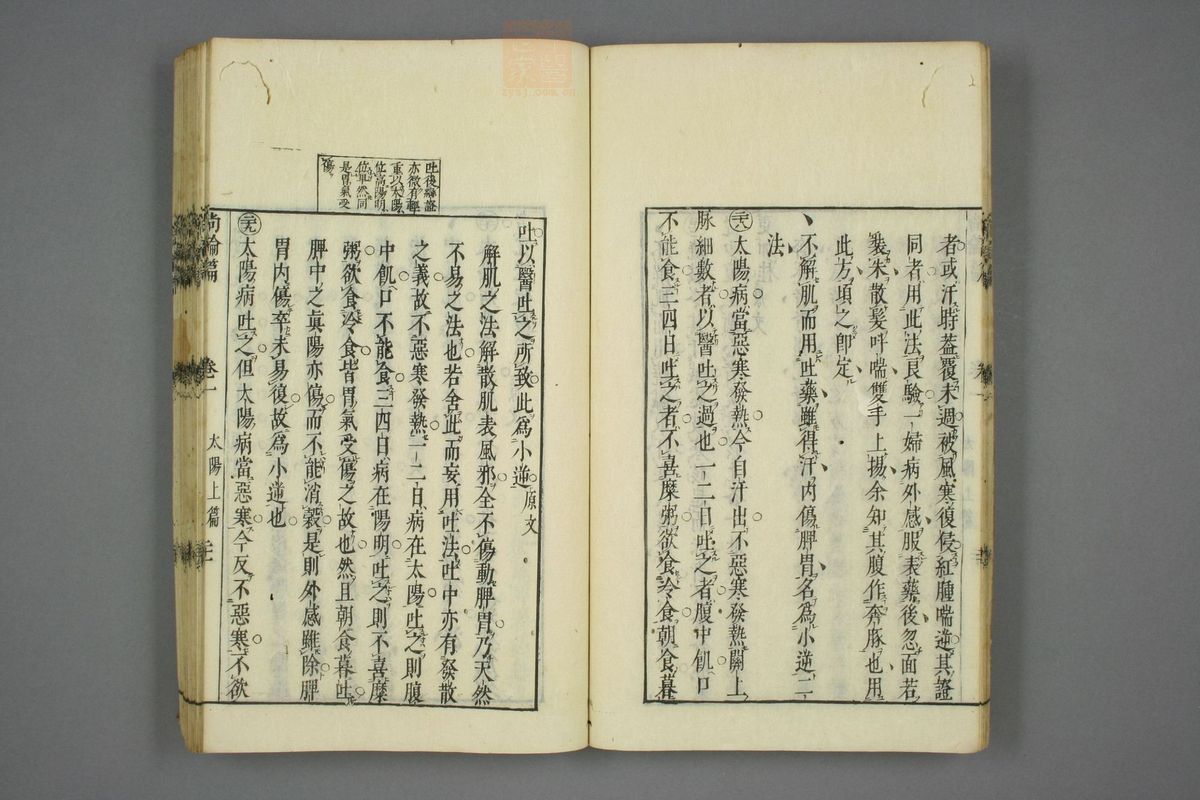 者或汗時葢覆未週被風寒復侵紅腫喘逆其證
同者用此法良驗一婦病外感服表藥後忽面若
裝朱散髮呼喘雙手上揚余知其腹作奔豚也用
此方頃之卽定
不解肌而用吐藥雖得汗內傷脾胃名爲小逆二
法
二八太陽病當惡寒發熱今自汗出不惡寒發熱關上
脉細數者以醫吐之過也一二日吐之者腹中飢口
不能食三四日吐之者不喜糜粥欲食冷食朝食暮
吐後癥證
亦微有輕
重以太陽
位高陽明
位卑然同
是胃氣受
傷
吐以醫吐之所致此爲小逆原文
解肌之法解散肌表風邪全不傷動脾胃乃天然
不易之法也若舍此而妄用吐法吐中亦有發散
之義故不惡寒發熱一二日病在太陽吐之則腹
中飢口不能食三四日病在陽明吐之則不喜糜
粥欲食冷食皆胃氣受傷之故也然且朝食暮吐
脾中之眞陽亦傷而不能消穀是則外感雖除脾
胃內傷卒未易復故爲小逆也
二九太陽病吐之但太陽病當惡寒今反不惡寒不欲
尚論篇 卷一 太陽上篇
zysj.com.cn